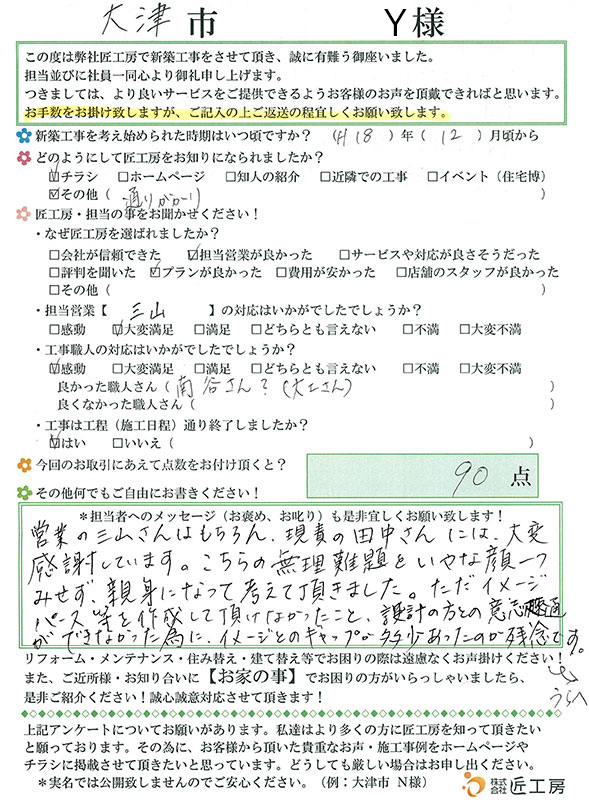 大津市 Y様
この度は弊社匠工房で新築工事をさせて頂き、誠に有難う御座いました。
担当並びに社員一同心より御礼申し上げます。
つきましては、より良いサービスをご提供できるようお客様のお声を頂戴できればと思います。
お手数をお掛け致しますが、ご記入の上ご返送の程宜しくお願い致します。
新築工事を考え始められた時期はいつ頃ですか？（H18）年（12）月頃から
どのようにして匠工房をお知りになられましたか？
☑チラシ □ホームページ □知人の紹介 □近隣での工事 □イベント（住宅博）
☑その他（通りがかり）
匠工房・担当の事をお聞かせください！
・なぜ匠工房を選ばれましたか？
□会社が信頼できた ☑担当営業が良かった □サービスや対応が良さそうだった
□評判を聞いた ☑プランが良かった □費用が安かった □店舗のスタッフが良かった
□その他（ ）
・担当営業【三山】の対応はいかがでしたでしょうか？
□感動 ☑大変満足 □満足 □どちらとも言えない □不満 □大変不満
・工事職人の対応はいかがでしたでしょうか？
☑感動 □大変満足 □満足 □どちらとも言えない □不満 □大変不満
良かった職人さん（南谷さん？（大工さん））
良くなかった職人さん（ ）
・工事は工程（施工日程）通り終了しましたか？
☑はい □いいえ（ ）
今回のお取引にあえて点数をお付け頂くと？ 90 点
その他何でもご自由にお書きください！
＊担当者へのメッセージ（お褒め、お叱り）も是非宜しくお願い致します！
営業の三山さんはもちろん、現責の田中さんには、大変
感謝しています。こちらの無理難題をいやな顔一つ
みせず、親身になって考えて頂きました。ただイメージ
パース等を作成して頂けなかったこと、設計の方との意志疎通
ができなかった為に、イメージとのギャップが多少あったのが残念です。
リフォーム・メンテナンス・住み替え・建て替え等でお困りの際は遠慮なくお声掛けください！
また、ご近所様・お知り合いに【お家の事】でお困りの方がいらっしゃいましたら、
是非ご紹介ください！誠心誠意対応させて頂きます！
うらへ
上記アンケートについてお願いがあります。私達はより多くの方に匠工房を知って頂きたい
と願っております。その為に、お客様から頂いた貴重なお声・施工事例をホームページや
チラシに掲載させて頂きたいと思っています。どうしても厳しい場合はお申し出ください。
＊実名では公開致しませんのでご安心ください。（例：大津市 N様）
株式会社 匠工房